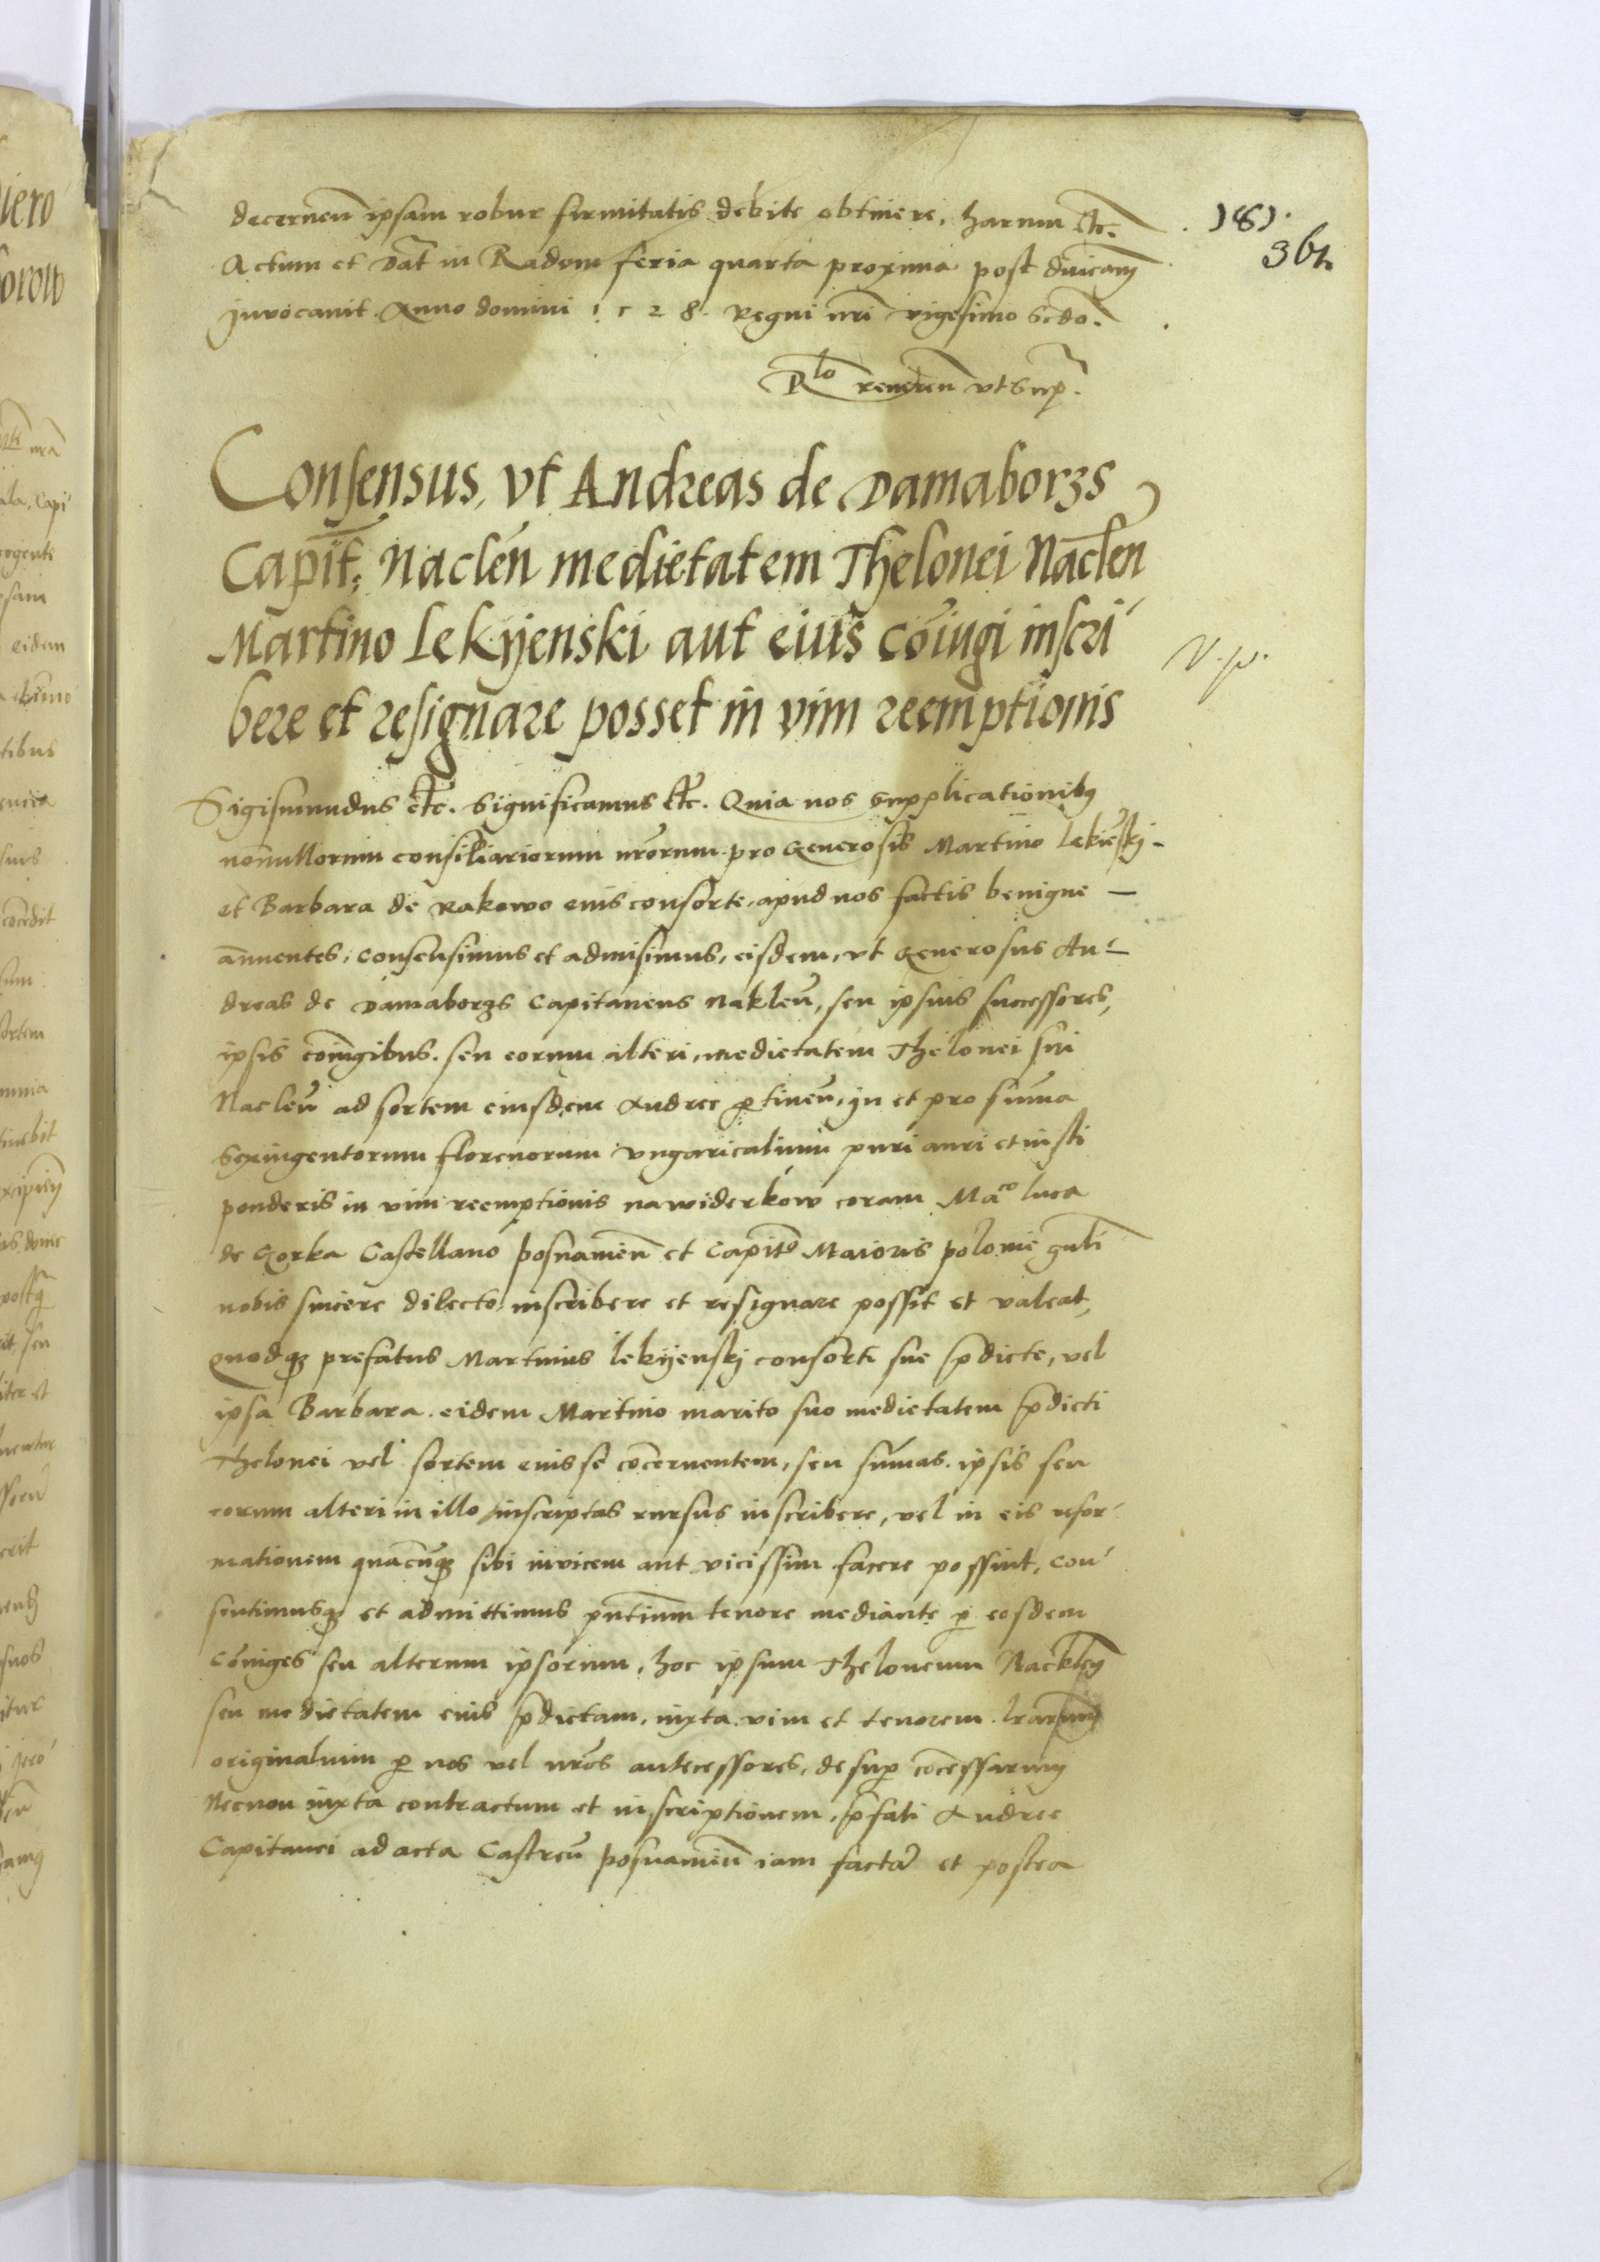 decernen̄ ipsam robur firmitatis debite obtinere. harum etc.
Actum et Dat̄ in Radom feria quarta proxima post dnicam
Invocavit Anno domini 1528. Regni nr̄i vigesimo scdo.
Rlo reveren̄ vt supr.
181.
361.
Consensus, vt Andreas de Damaborzs
Capit: Naclen̄ medietatem Thelonei Naclen̄
Martino Lekyenski aut eius cōiugi inscri
bere et resignare posset in vim reemptionis
V. p.
Sigismundus etc. Significamus etc. Quia nos supplicationibȝ
nonnullorum consiliariorum nr̄orum pro Generosis Martino Lekieñskj
et Barbara de Rakowo eius consorte, apud nos factis benigne
annuentes, consensimus et admisimus, eisdem, vt Generosus An-
dreas de Damaborzs Capitaneus Naklen̄, seu ipsius successores,
ipsis cōniugibus. seu eorum alteri, medietatem Thelonei sui
Naclen̄ ad sortem eiusdem Andree ꝑtinen̄, in et pro sum̄a
Sexingentorum florenorum vngaricalium puri auri et iusti
ponderis in vim reemptionis nawiderkow coram Mac̄o Luca
de Gorka Castellano posnanien̄ et Capitō Maioris polonie gn̄li
nobis sincere dilecto, inscribere et resignare possit et valeat,
Quodqȝ prefatus Martinus lekyenskj consorti sue p̄dicte, vel
ipsa Barbara. eidem Martino marito suo medietatem p̄dicti
Thelonei vel sortem eius se cōcernentem, seu sum̄as. ipsis seu
eorum alteri in illo inscriptas rursus inscribere, vel in eis refor
mationem quācūqȝ sibi invicem aut vicissim facere possint, con
sentimusqȝ et admittimus pn̄tium tenore mediante ꝑ eosdem
Cōiuges seu alterum ipsorum, hoc ipsum Theloneum Nacklen̄
seu medietatem eius p̄dictam, iuxta vim et tenorem lr̄arum
originalium ꝑ nos vel nr̄os antecessores, desuꝑ cōcessarum
Necnon iuxta contractum et inscriptionem, p̄fati Andree
Capitanei ad acta Castren̄ posnanien̄ iam factā et postea